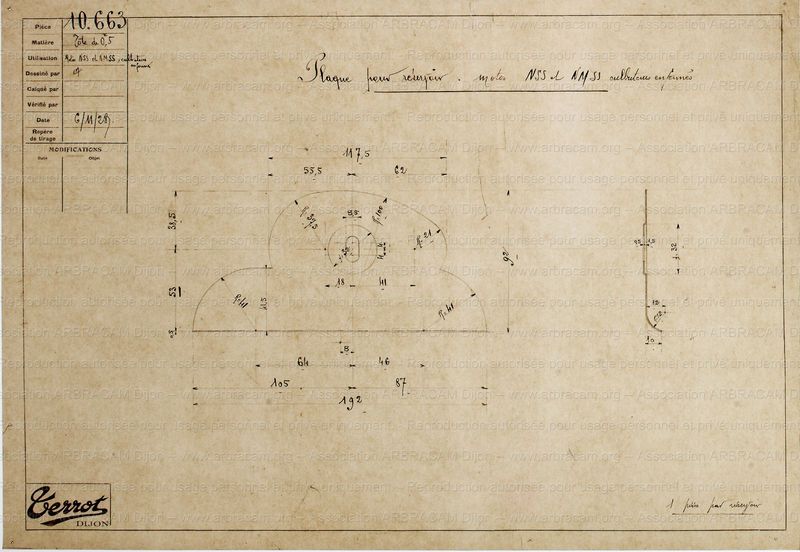 Pièce 10.663
Matière Tôle de 0,5
Utilisation Motos NSS et NMSS, culbuteurs enfermés
Dessiné par
Calqué par
Vérifié par
Date 6/11/28
Repère de tirage
MODIFICATIONS
Date Objet
Plaque pour réservoir. motos NSS et NMSS culbuteurs enfermés
117,5
55,5 62
38,5
53
18 41
R=41
R=21
R=41
8
64 46
105 87
192
92
32
12
10
1 pièce par réservoir
Terrot
DIJON
Reproduction autorisée pour usage personnel et privé uniquement
Association ARBRACAM Dijon – www.arbracam.org